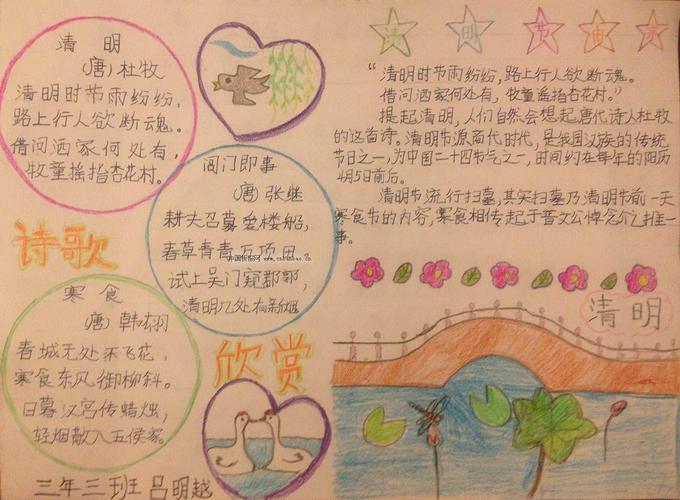 清明
(唐)杜牧
清明时节雨纷纷,
路上行人欲断魂。
借问洒家何处有,
牧童摇指杏花村。
阊门即事
(唐)张继
耕夫召募爱楼船,
春草青青万项田,
试上吴门窥郡郭,
清明几处有新烟
诗歌
寒食
(唐)韩翃
春城无处不飞花,
寒食东风御柳斜。
日暮汉宫传蜡烛,
轻烟散入五侯家。
欣赏
三年三班 吕明越
清明节
“清明时节雨纷纷,路上行人欲断魂。
借问洒家何处有,牧童摇指杏花村。”
提起清明,人们自然会想起唐代诗人杜牧
的这首诗。清明节源商代时代,是我国汉族的传统
节日之一,为中国二十四节气之一,时间约在每年的阳历
4月5日前后。
清明节流行扫墓,其实扫墓乃清明节前一天
寒食节的内容,寒食相传起于晋文公悼念介推一
事。
清明